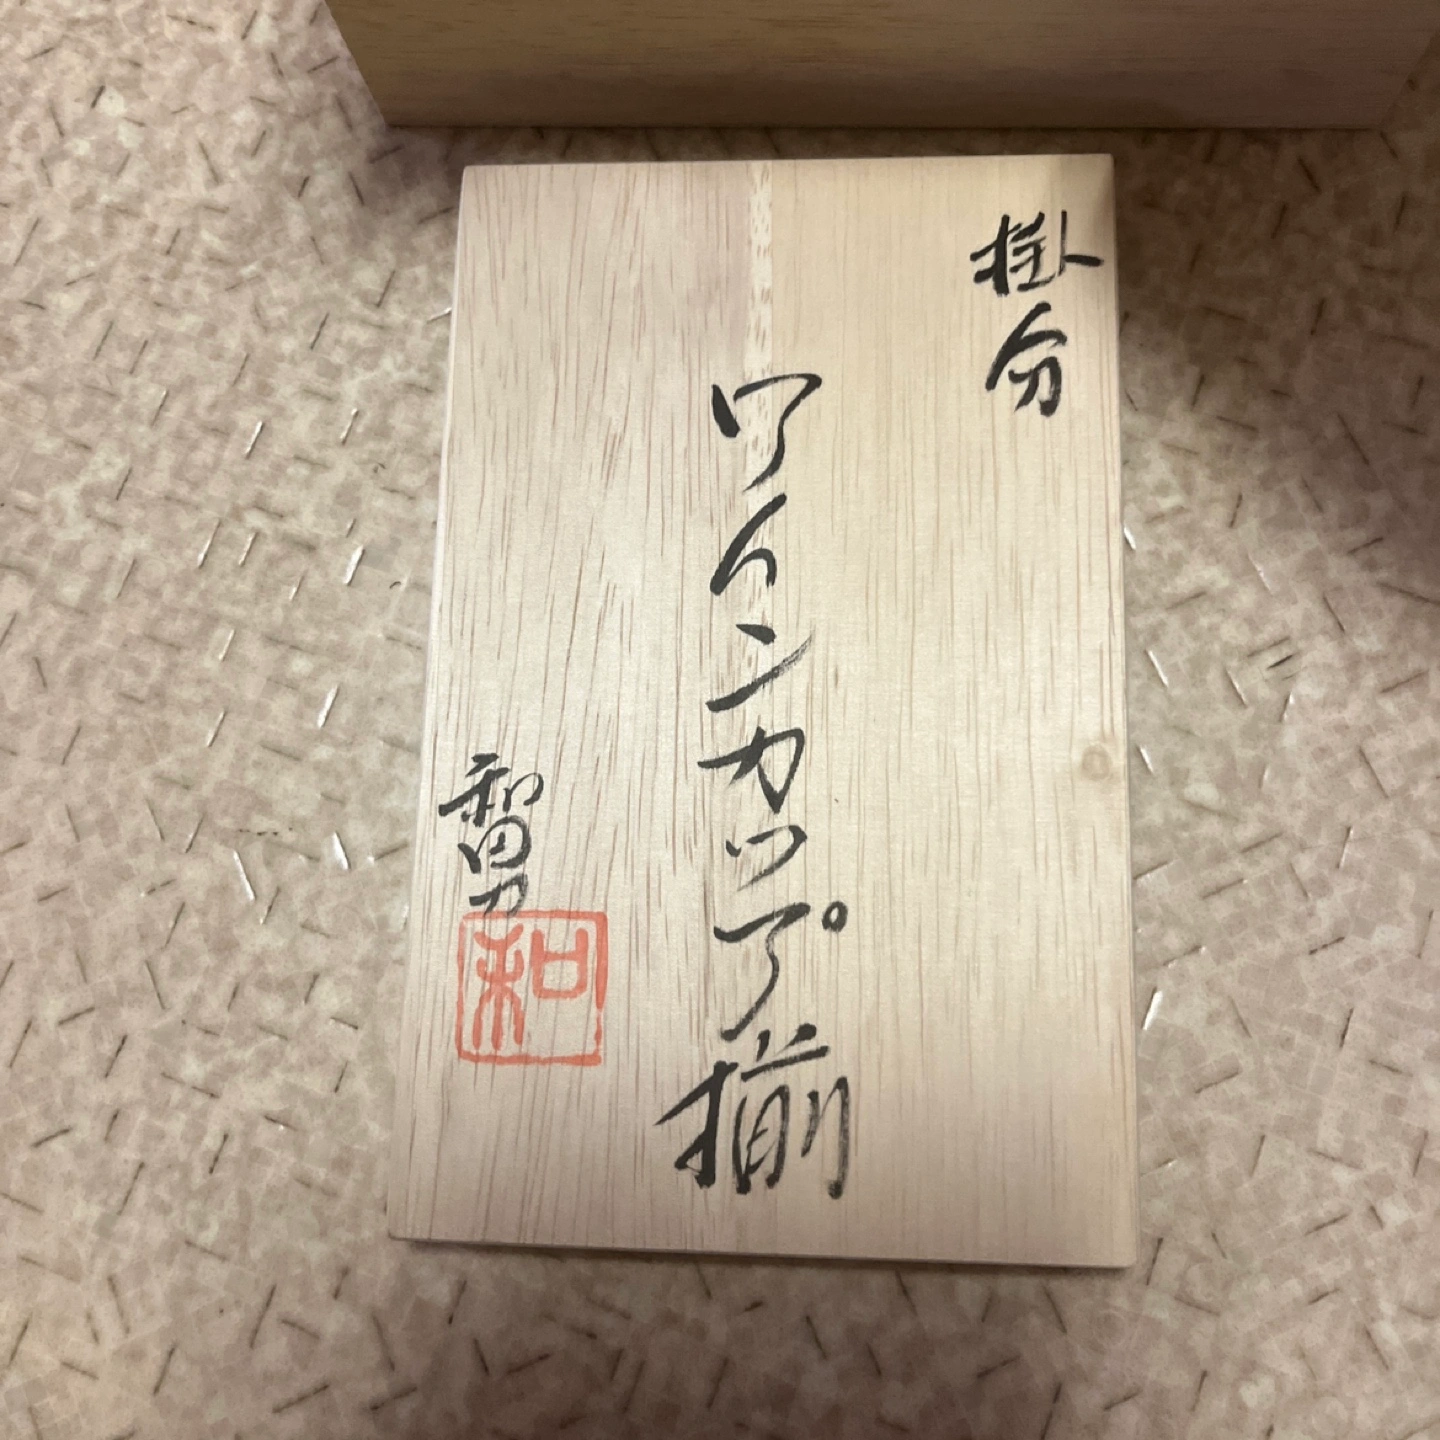 掛分
ワインカップ揃
和田力
和